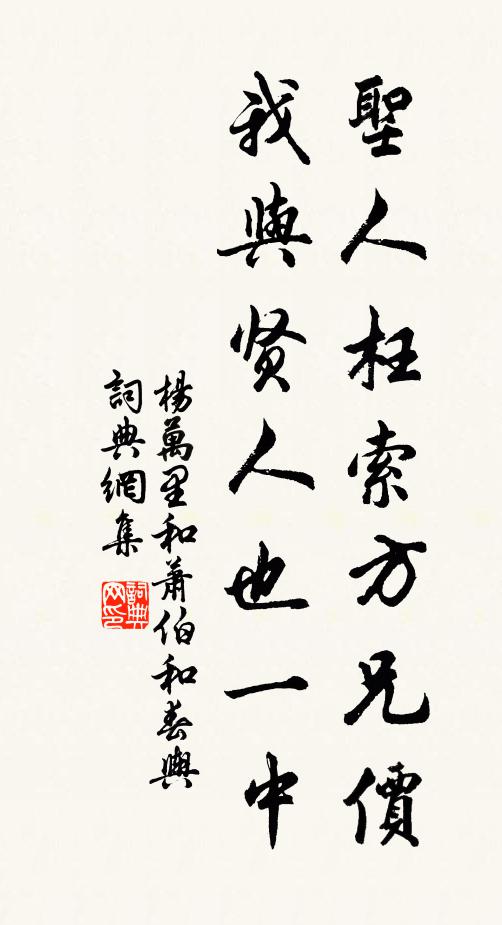 聖人枉索方兄價
我與賢人也一中
楊萬里和蕭伯和春興
詞典網集
詞典网印